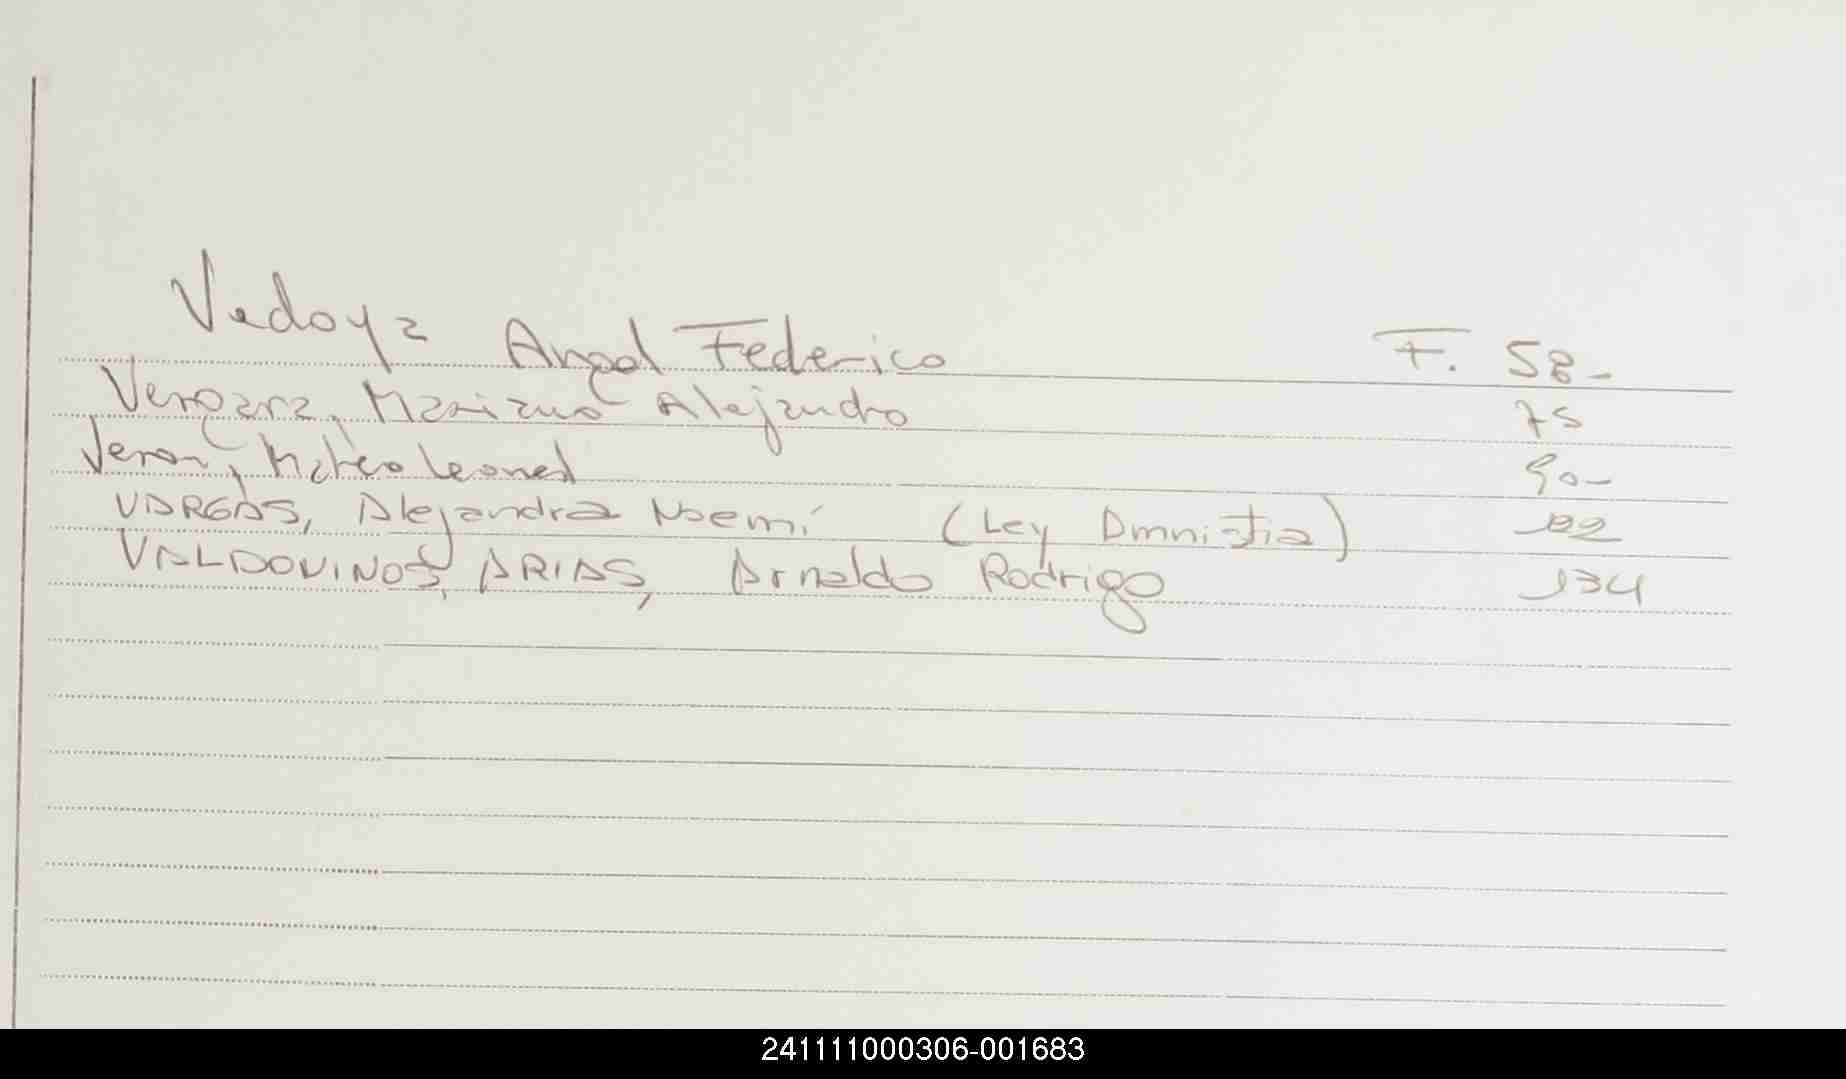 Vedoya Angel Federico F. 58-
Vergara, Mariano Alejandro 75
Veron, Mateo Leonel 90-
VARGAS, Alejandra Noemí (Ley Amnistia) 122
VALDOVINOS, ARIAS, Arnaldo Rodrigo 134
241111000306-001683